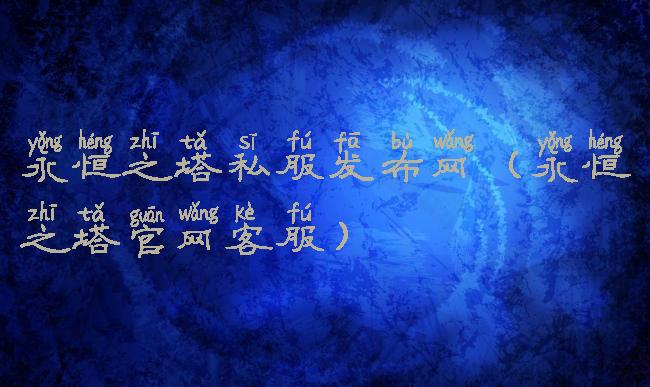 yǒng héng zhī tǎ sī fú fā bù wǎng yǒng héng
永恒之塔私服发布网（永恒
zhī tǎ guān wǎng kè fú
之塔官网客服）